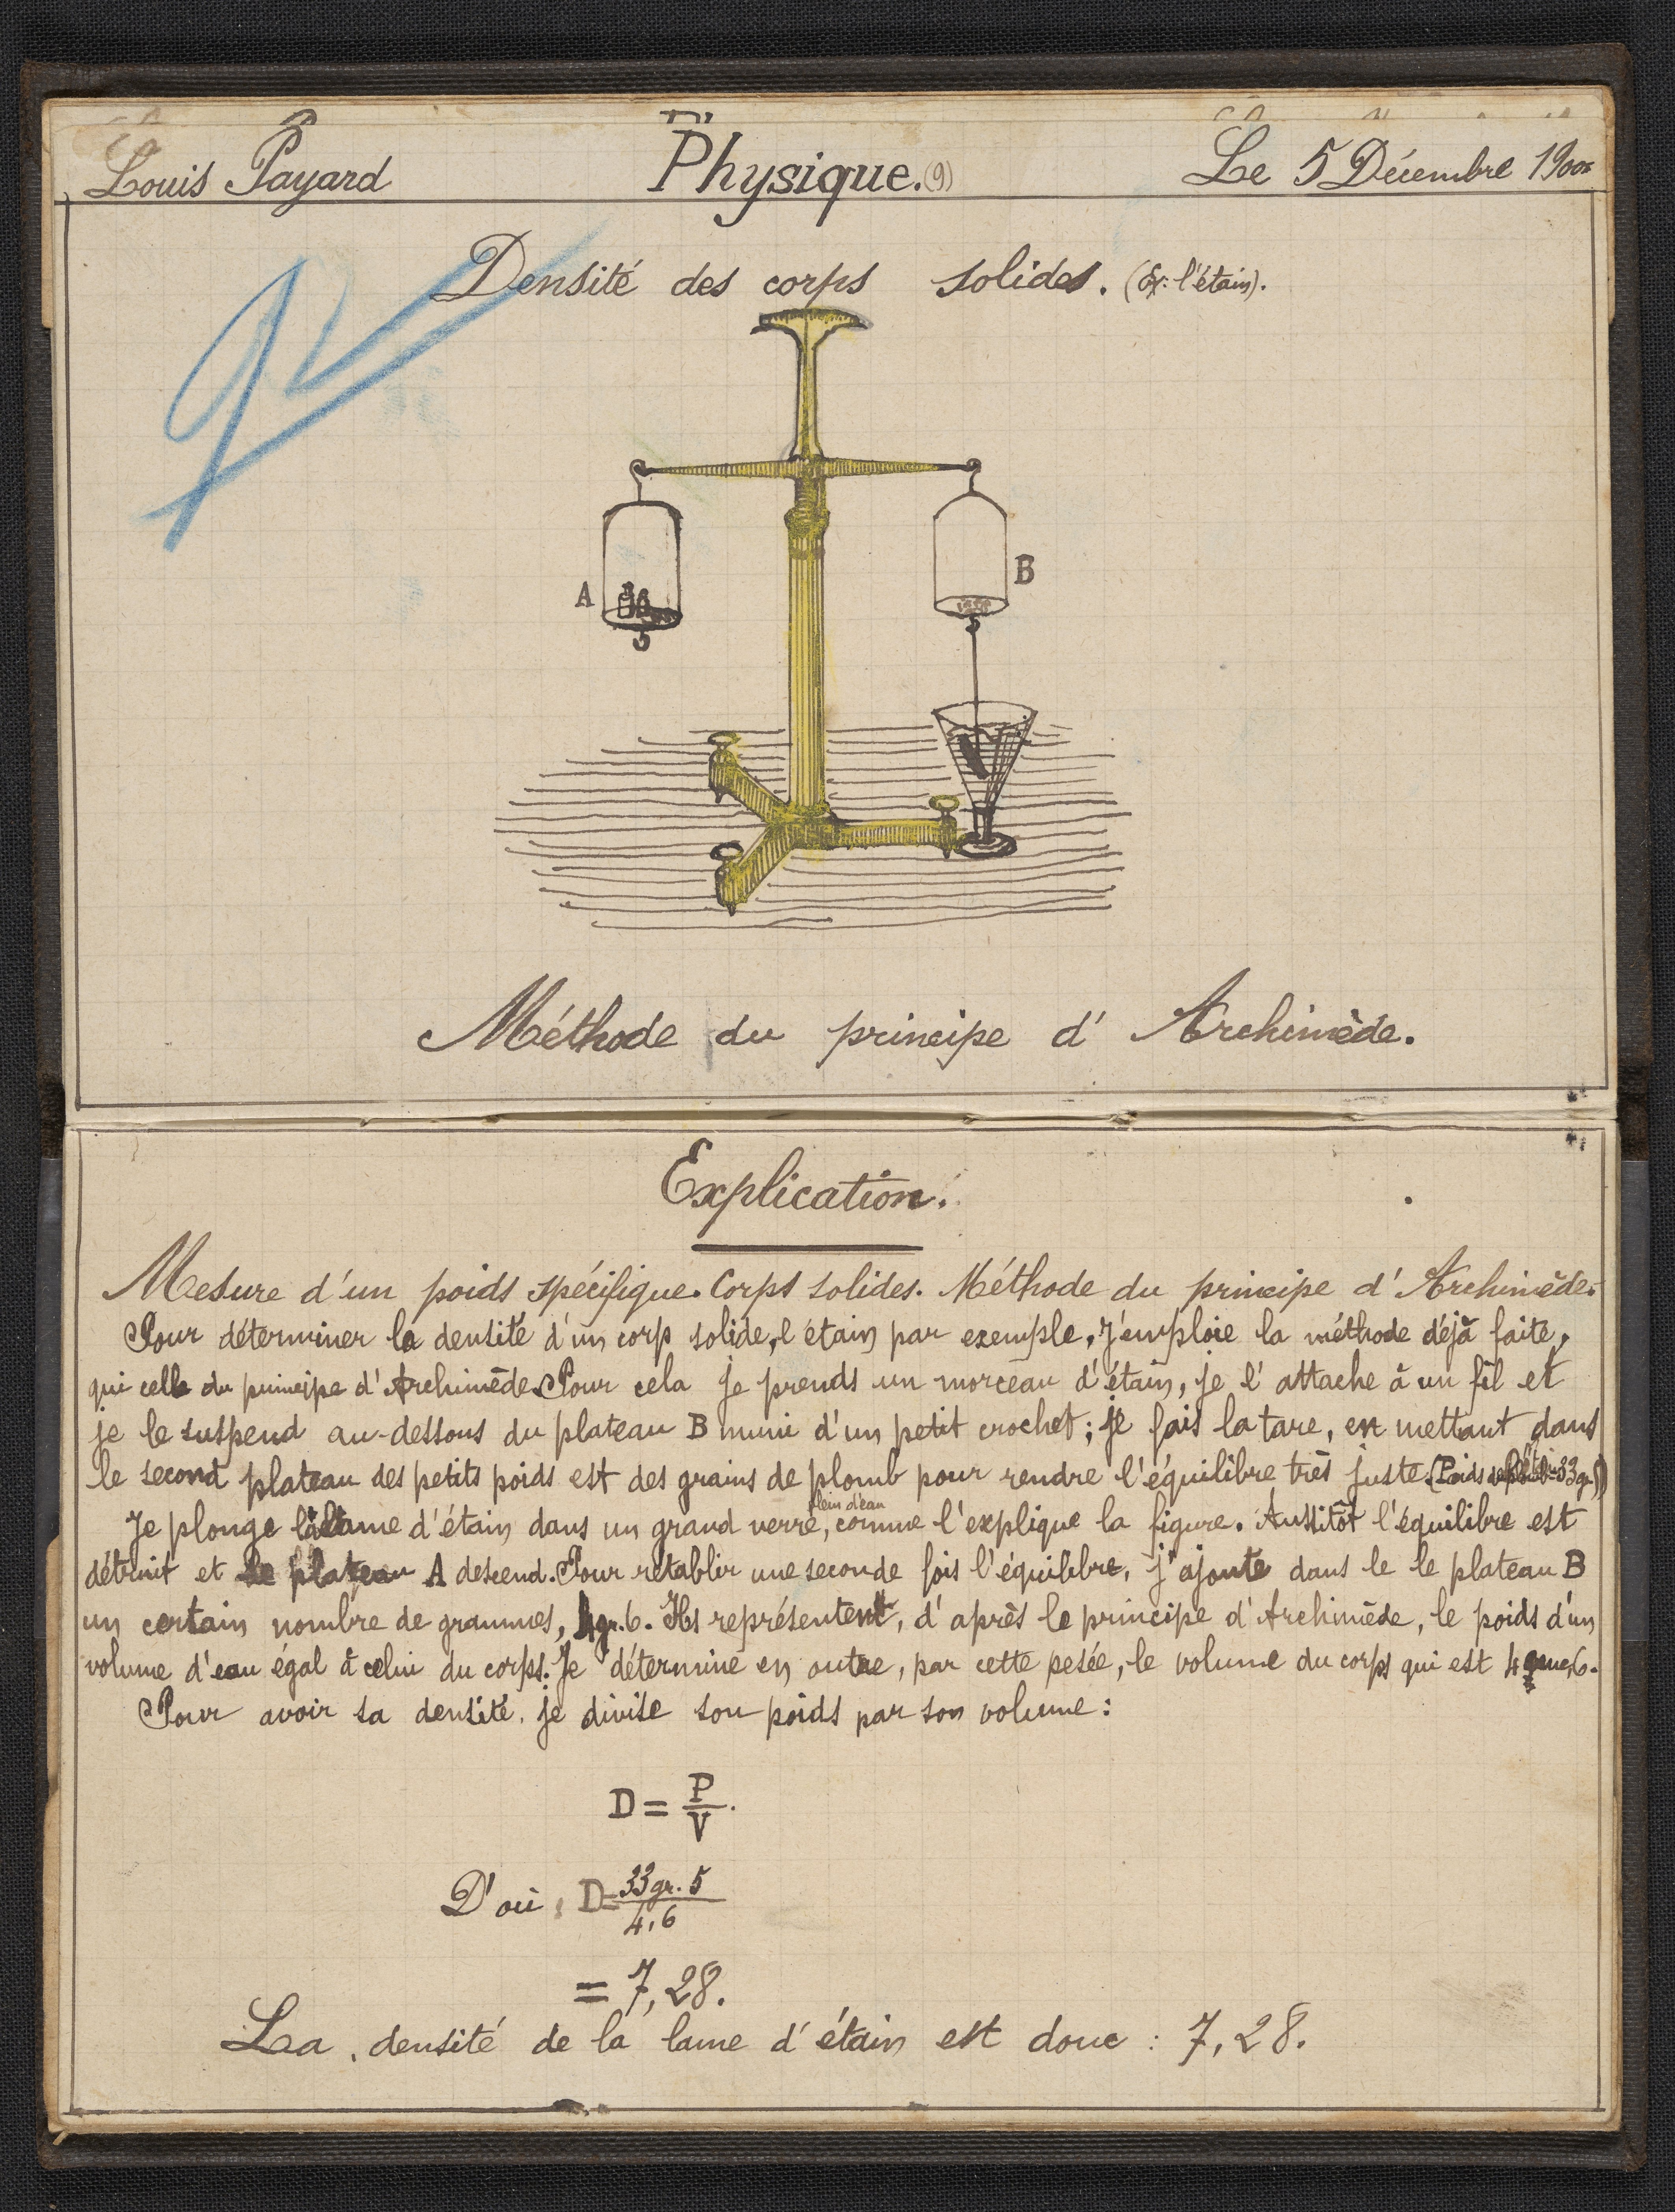 Louis Payard
Physique. (9)
Le 5 Décembre 1900
Densité des corps solides. (Ex: l'étain).
A
B
Méthode du principe d' Archimède.
Explication.
Mesure d'un poids spécifique. Corps solides. Méthode du principe d' Archimède.
Pour déterminer la densité d'un corp solide, l'étain par exemple, j'emploie la méthode déjà faite,
qui celle du principe d' Archimède. Pour cela je prends un morceau d'étain, je l' attache à un fil et
je le suspend au-dessous du plateau B muni d'un petit crochet; je fais la tare, en mettant dans
le second plateau des petits poids est des grains de plomb pour rendre l'équilibre très juste. (Poids 33gr,5)
Je plonge la lame d'étain dans un grand verre, plein d'eau comme l'explique la figure. Aussitôt l'équilibre est
détruit et le plateau A descend. Pour rétablir une seconde fois l'équilibre, j'ajoute dans le le plateau B
un certain nombre de grammes, 4gr.6. Ils représentent, d'après le principe d'Archimède, le poids d'un
volume d'eau égal à celui du corps. Je détermine en outre, par cette pesée, le volume du corps qui est 4 6.
Pour avoir sa densité, je divise son poids par son volume :
D = P/V.
D'où, D = 33gr.5/4,6
= 7,28.
La densité de la lame d'étain est donc : 7,28.